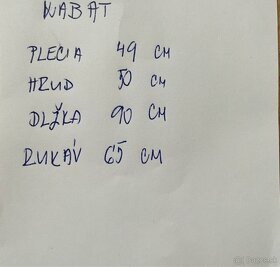 KABÁT
PLECIA 49 CM
HRUD 50 CM
DLŽKA 90 CM
RUKÁV 65 CM
Bazos.sk